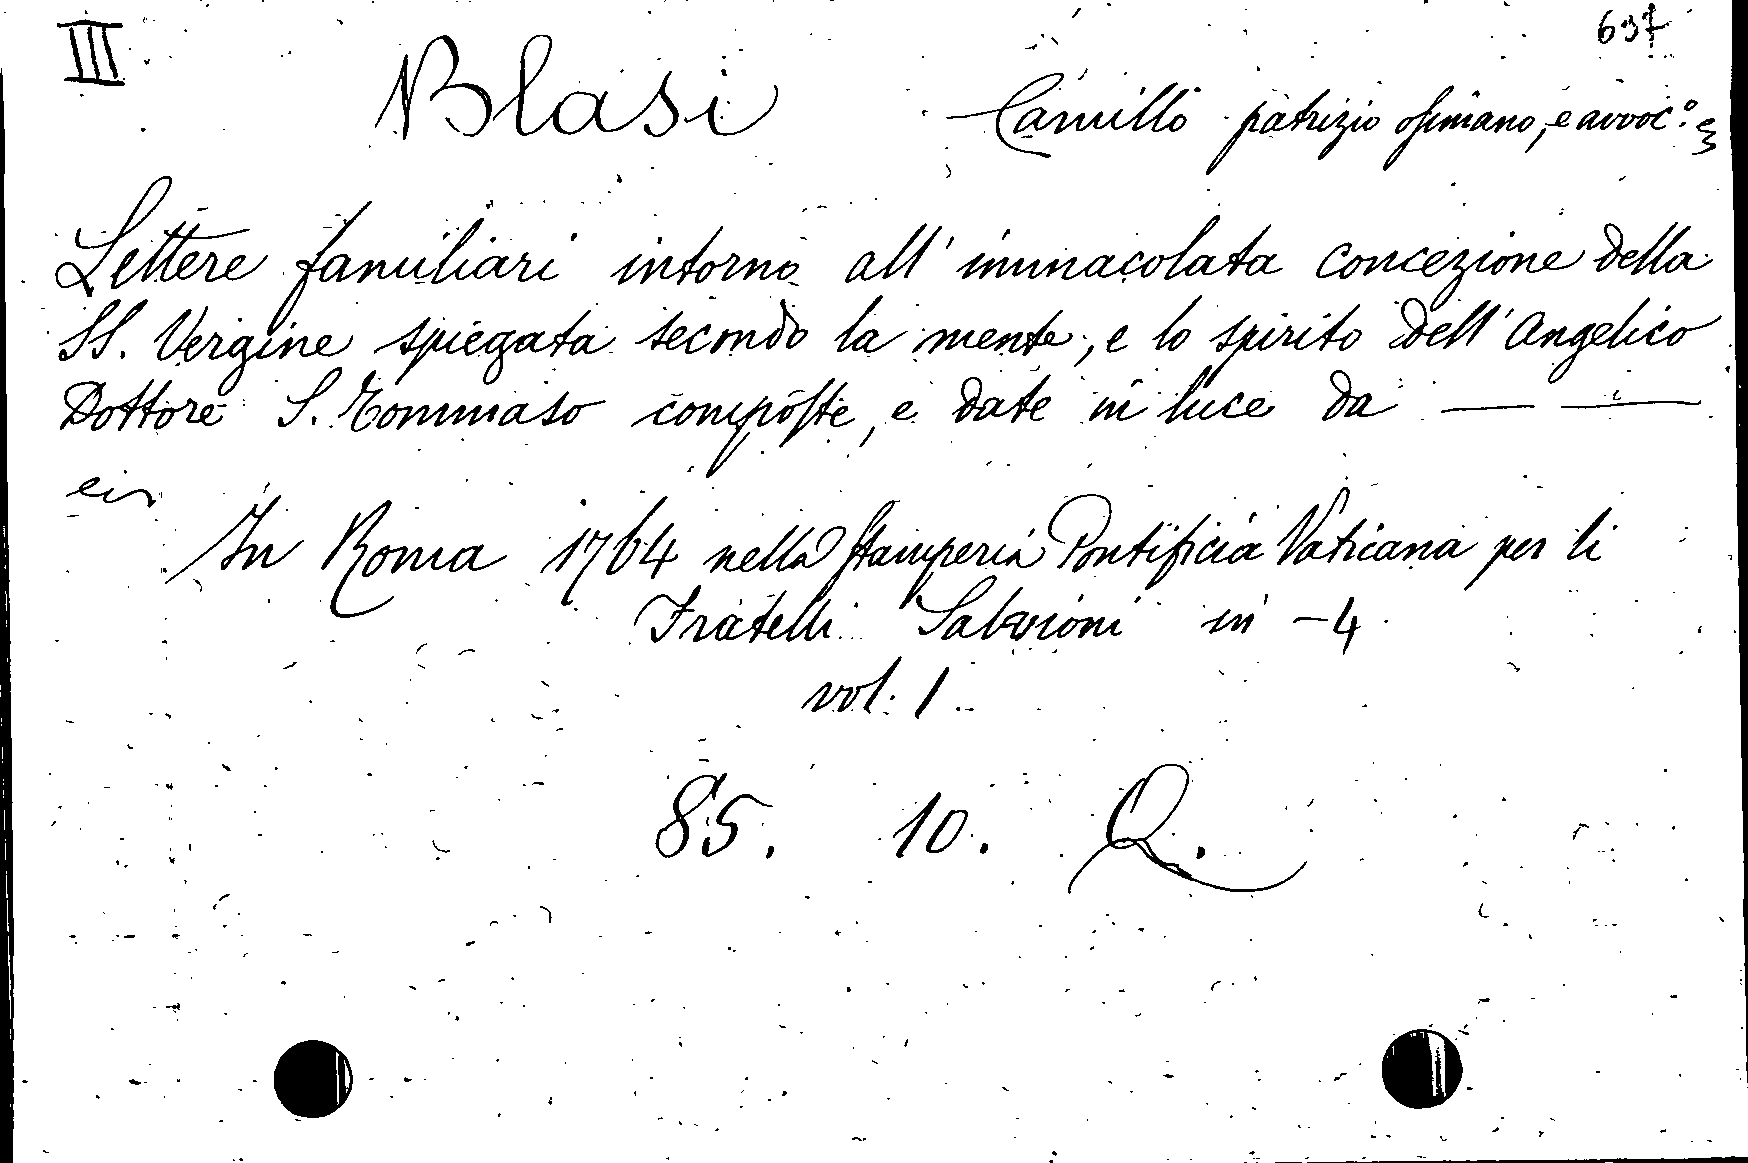 III
637
Blasi Camillo patrizio osimano, e avvoc.º
Lettere familiari intorno all' immacolata concezione della
SS. Vergine spiegata secondo la mente, e lo spirito dell' Angelico
Dottore S. Tommaso composte, e date in luce da — —
In Roma 1764 nella Stamperia Pontificia Vaticana per li
Fratelli Salvioni in -4
vol. 1
85. 10. Q.